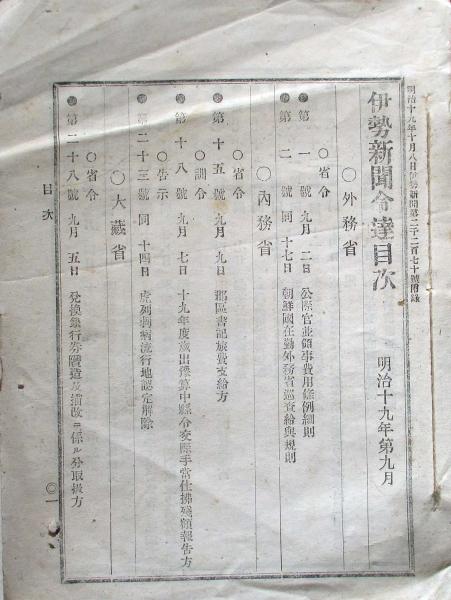 明治十九年十月八日伊勢新聞第二千二百七十號附錄
伊勢新聞令達目次　明治十九年第九月
〇外務省
〇省令
第一號　九月二日　公際官並領事費用條例細則
第二號　同十七日　朝鮮國在勤外務省巡査給與規則
〇內務省
〇省令
第十五號　九月九日　郡區書記旅費支給方
〇訓令
第十八號　九月七日　十九年度歲出豫算中縣令交際手當仕拂殘額報告方
〇告示
第二十三號　同十四日　虎列剌病流行地認定解除
〇大藏省
〇省令
第二十八號　九月五日　兌換銀行券贋造及描改ニ係ル分取扱方
目次
〇一